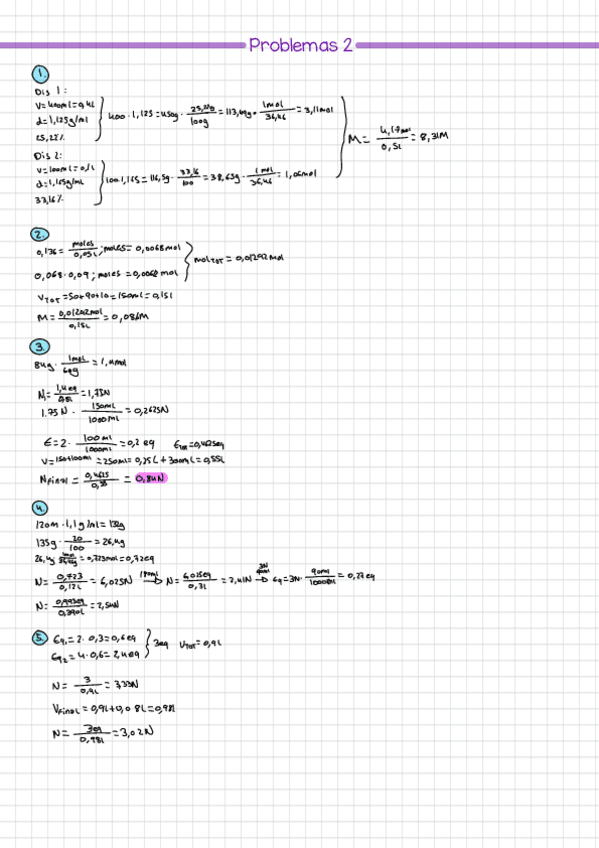 Problemas 2
1.
Dis 1:
V=400ml=0,4L
d=1,125g/ml
25,22%
400·1,125=450g· 25,220/100g =113,49g· 1mol/36,46 =3,11mol
Dis 2:
V=100ml=0,1L
d=1,165g/mL
33,16%
100·1,165=116,5g· 33,16/100 =38,63g· 1mol/36,46 =1,06mol
M= 4,17mol/0,5L =8,34M
2.
0,136= moles/0,05L ; moles= 0,0068mol
0,068·0,09; moles =0,0062 mol
molTOT=0,01292mol
VTOT=50+90+10=150ml=0,15l
M= 0,01292mol/0,15L =0,086M
3.
84g· 1mol/60g =1,4mol
N= 1,4eq/0,8L =1,75N
1.75N· 150mL/1000mL =0,2625N
E=2· 100ml/1000ml =0,2eq ETOT=0,4625eq
V=150+100ml=250ml=0,25L+300mL=0,55L
NFinal= 0,4625/0,55 = 0,84N
4.
120m·1,1g/ml=132g
135g· 20/100 =26,4g
=0,723mol=0,72eq
N= 0,723/0,12L =6,025N N= 6,025eq/0,3L =2,41N Eq=3N· 90ml/1000ml =0,27eq
N= 0,993eq/0,390L =2,54N
5.
Eq1=2·0,3=0,6eq
Eq2=4·0,6=2,4eq
3eq VTOT=0,9L
N= 3/0,9L =3,33N
VFinal=0,9L+0,08L=0,98l
N= 3eq/0,98l =3,02N